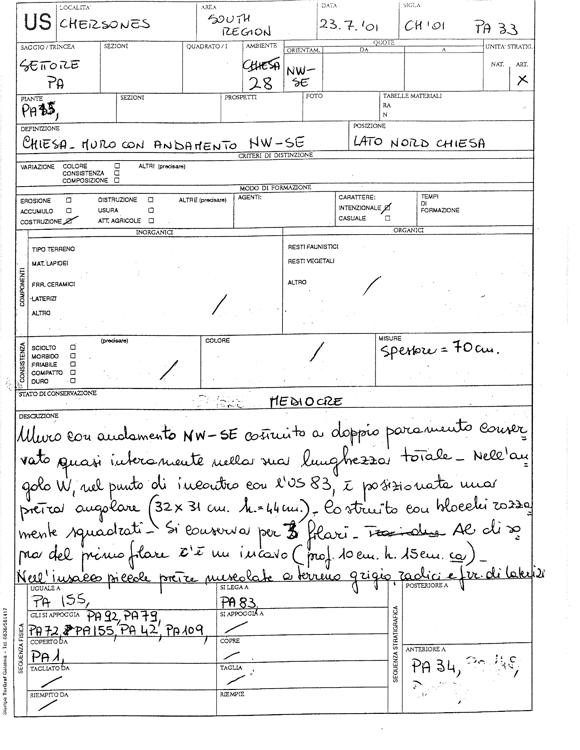 US
LOCALITA'
CHERSONES
AREA
SOUTH REGION
DATA
23.7.'01
SIGLA
CH'01 PA 33
SAGGIO / TRINCEA
SETTORE PA
SEZIONI
QUADRATO / I
AMBIENTE
CHIESA
28
ORIENTAM.
NW-SE
QUOTE
DA
A
UNITA' STRATIG.
NAT. ART.
X
PIANTE
SEZIONI
PROSPETTI
FOTO
TABELLE MATERIALI
RA
N
DEFINIZIONE
CHIESA - MURO CON ANDAMENTO NW-SE
POSIZIONE
LATO NORD CHIESA
CRITERI DI DISTINZIONE
VARIAZIONE COLORE ☐ ALTRI (precisare)
CONSISTENZA ☐
COMPOSIZIONE ☐
MODO DI FORMAZIONE
EROSIONE ☐ DISTRUZIONE ☐ ALTRE (precisare)
ACCUMULO ☐ USURA ☐
COSTRUZIONE ☑ ATT. AGRICOLE ☐
AGENTI:
CARATTERE:
INTENZIONALE ☑
CASUALE ☐
TEMPI
DI
FORMAZIONE
COMPONENTI
INORGANICI
ORGANICI
TIPO TERRENO
MAT. LAPIDEI
FRR. CERAMICI
LATERIZI
ALTRO
/
RESTI FAUNISTICI
RESTI VEGETALI
ALTRO
/
CONSISTENZA
(precisare)
SCIOLTO ☐
MORBIDO ☐
FRIABILE ☐
COMPATTO ☐
DURO ☐
/
COLORE
/
MISURE
spessore = 70 cm.
STATO DI CONSERVAZIONE
MEDIOCRE
DESCRIZIONE
Muro con andamento NW-SE costruito a doppio paramento conser
vato quasi interamente nella sua lunghezza totale - Nell'an
golo W, nel punto di incontro con l'US 83, è posizionata una
pietra angolare (32 x 31 cm. h. = 44 cm.) - Costruito con blocchi rozza
mente squadrati - Si conserva per 3 filari - Al di so
pra del primo filare c'è un incavo (prof. 10 cm. h. 15 cm. ca) -
Nell'insacco piccole pietre mescolate a terreno grigio, radici e fr. di laterizi
SEQUENZA FISICA
UGUALE A
PA 155,
SI LEGA A
PA 83,
GLI SI APPOGGIA PA 92, PA 79,
PA 72, PA 155, PA 42, PA 109,
SI APPOGGIA A
/
COPERTO DA
PA 1,
COPRE
/
TAGLIATO DA
/
TAGLIA
/
RIEMPITO DA
/
RIEMPIE
SEQUENZA STRATIGRAFICA
POSTERIORE A
ANTERIORE A
PA 34,